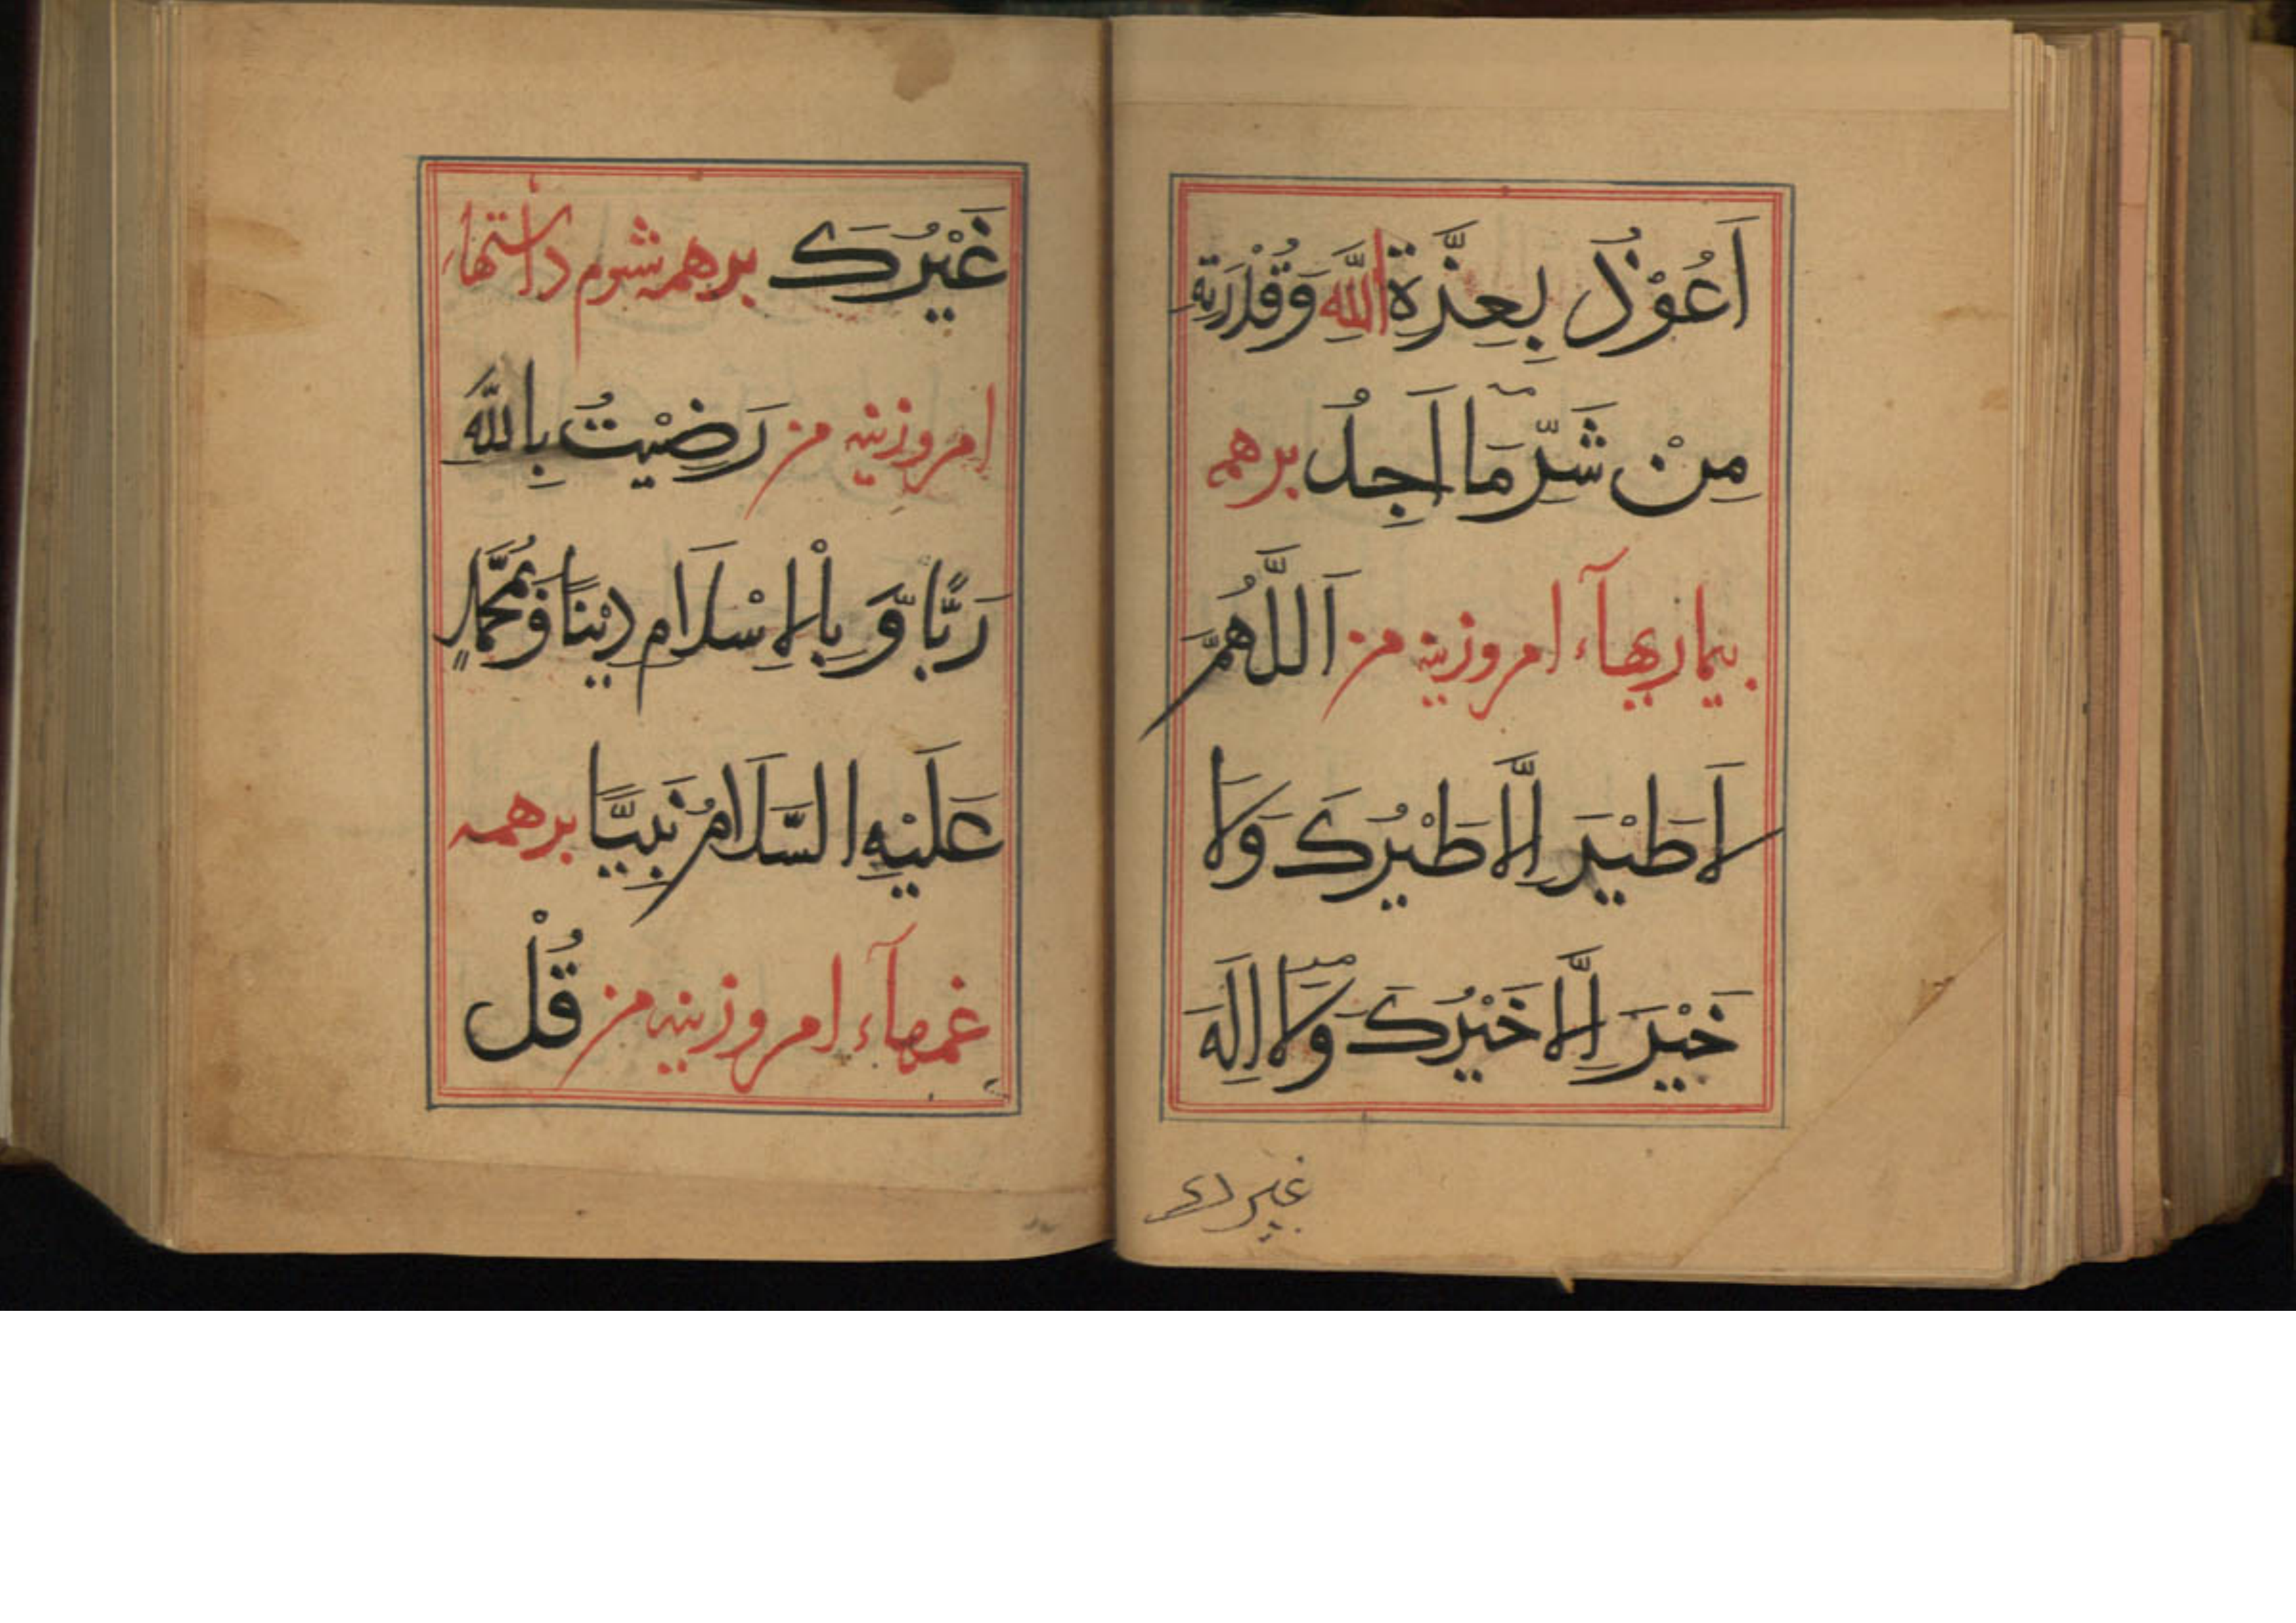 اَعُوْذُ بِعِزَّةِ اللّٰهِ وَقُدْرَتِهٖ
مِنْ شَرِّ مَا اَجِدُ برهمه
بیماریهآء امروزینه من اَللّٰهُمَّ
لَا طَيْرَ اِلَّا طَيْرُكَ وَلَا
خَيْرَ اِلَّا خَيْرُكَ وَلَا اِلٰهَ
غیرک
غَيْرُكَ برهمه شوم داشتهاء
امروزینه من رَضِيْتُ بِاللّٰهِ
رَبًّا وَّ بِالْاِسْلَامِ دِيْنًا وَّبِمُحَمَّدٍ
عَلَيْهِ السَّلَامُ نَبِيًّا برهمه
غمهآء امروزینه من قُلْ